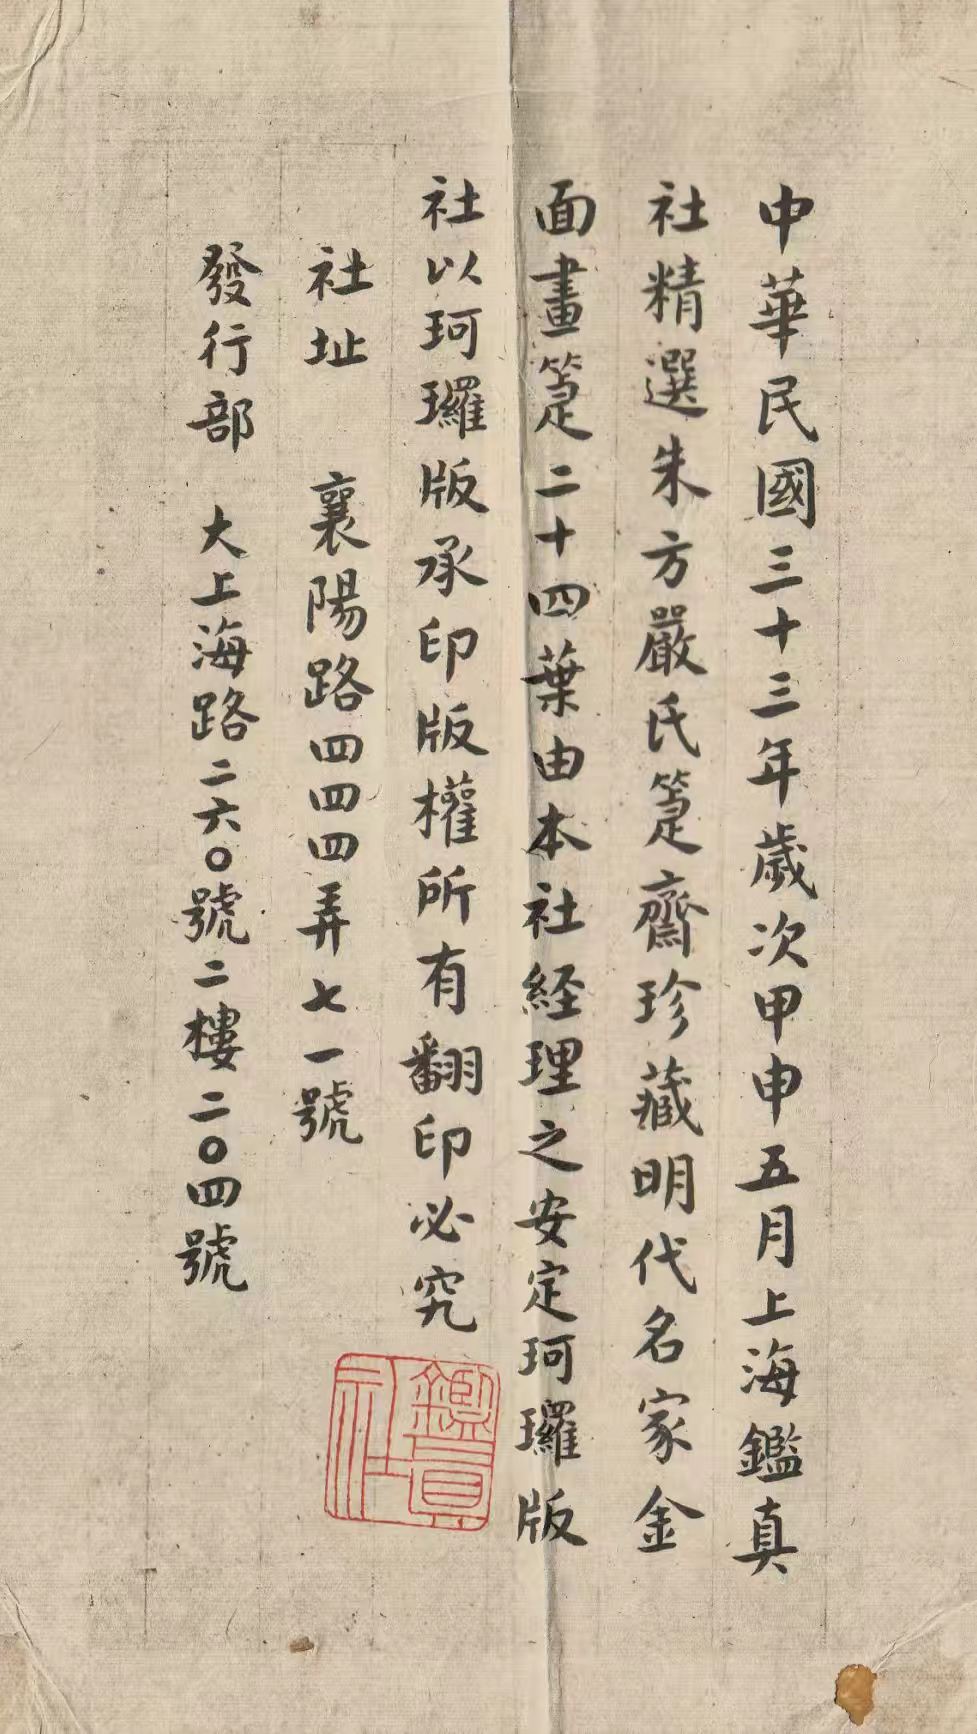 中華民國三十三年歲次甲申五月上海鑑真
社精選朱方嚴氏箑齋珍藏明代名家金
面畫箑二十四葉由本社経理之安定珂瓓版
社以珂瓓版承印版權所有翻印必究
社址 襄陽路四四四弄七一號
發行部 大上海路二六〇號二樓二〇四號
鑑真
社